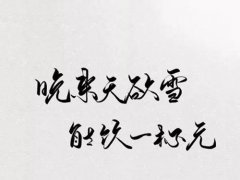 晚来天欲雪
能饮一杯无